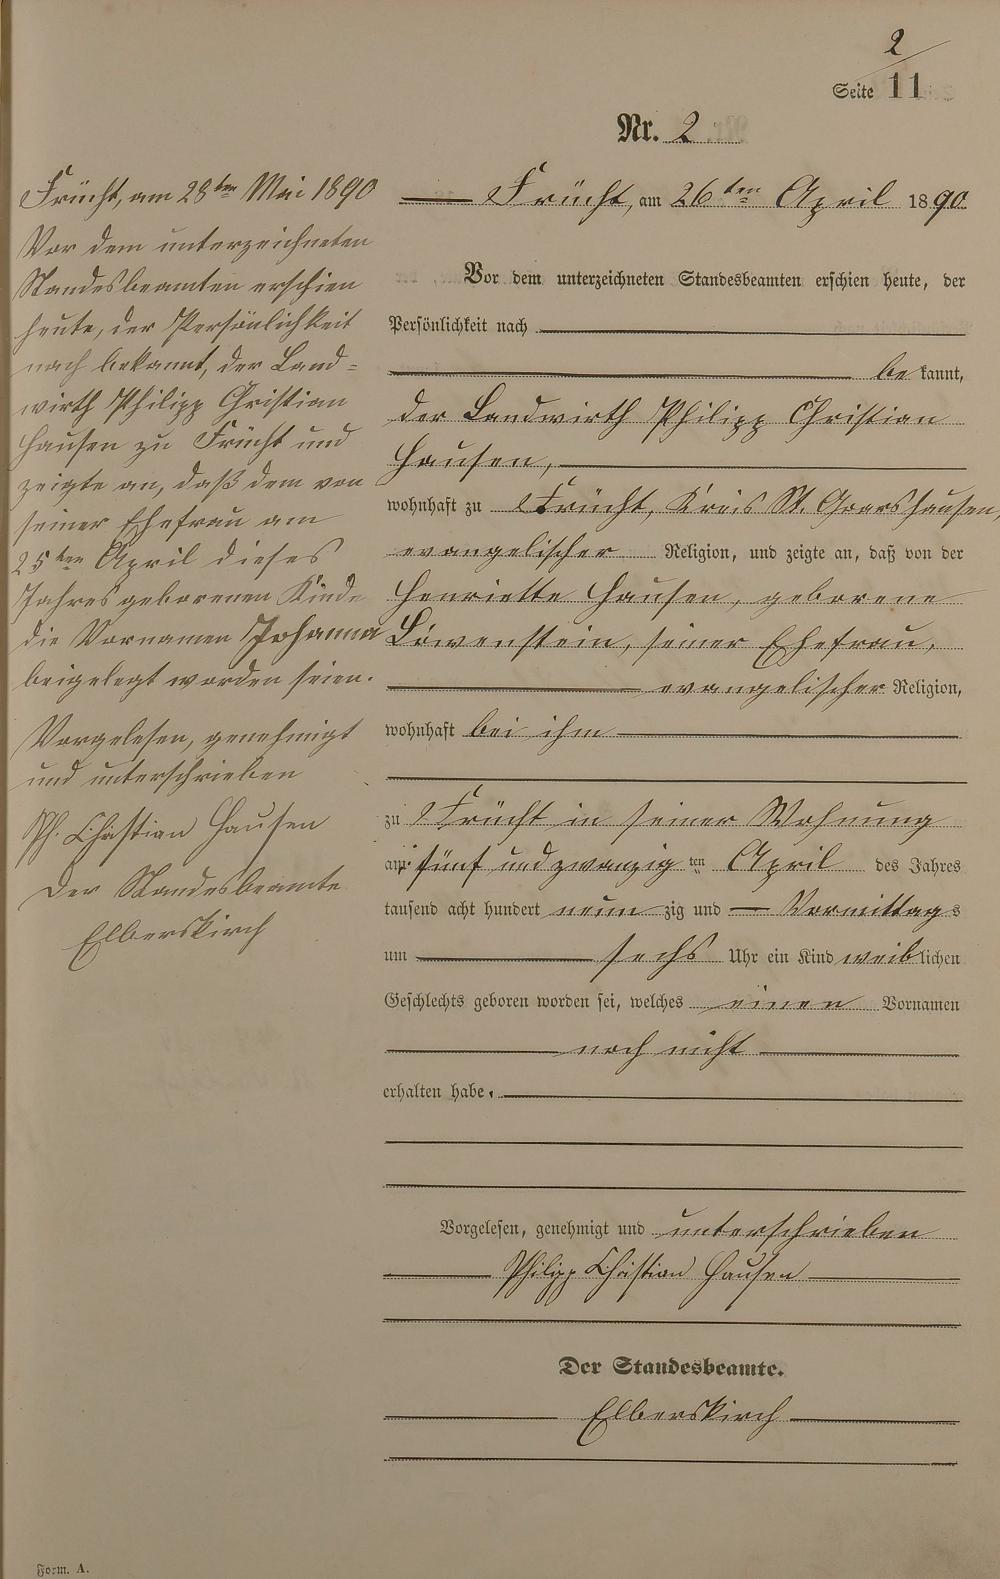 2
Seite 11
Nr. 2
Frücht, am 28ten Mai 1890
Vor dem unterzeichneten
Standesbeamten erschien
heute, der Persönlichkeit
nach bekannt, der Land=
wirth Philipp Christian
Hausen zu Frücht und
zeigte an, daß dem von
seiner Ehefrau am
25ten April dieses
Jahres geborenen Kinde
die Vornamen Johanna
beigelegt worden seien.
Vorgelesen, genehmigt
und unterschrieben
Ph. Christian Hausen
Der Standesbeamte
Elberskirch
Frücht, am 26ten April 1890
Vor dem unterzeichneten Standesbeamten erschien heute, der
Persönlichkeit nach
bekannt,
der Landwirth Philipp Christian
Hausen,
wohnhaft zu Frücht, Kreis St. Goarshausen,
evangelischer Religion, und zeigte an, daß von der
Henriette Hausen, geborene
Löwenstein, seiner Ehefrau,
evangelischer Religion,
wohnhaft bei ihm
zu Frücht in seiner Wohnung
am fünf und zwanzig ten April des Jahres
tausend acht hundert neun zig und Vormittags
um sechs Uhr ein Kind weiblichen
Geschlechts geboren worden sei, welches einen Vornamen
noch nicht
erhalten habe.
Vorgelesen, genehmigt und unterschrieben
Philipp Christian Hausen
Der Standesbeamte.
Elberskirch
Form. A.